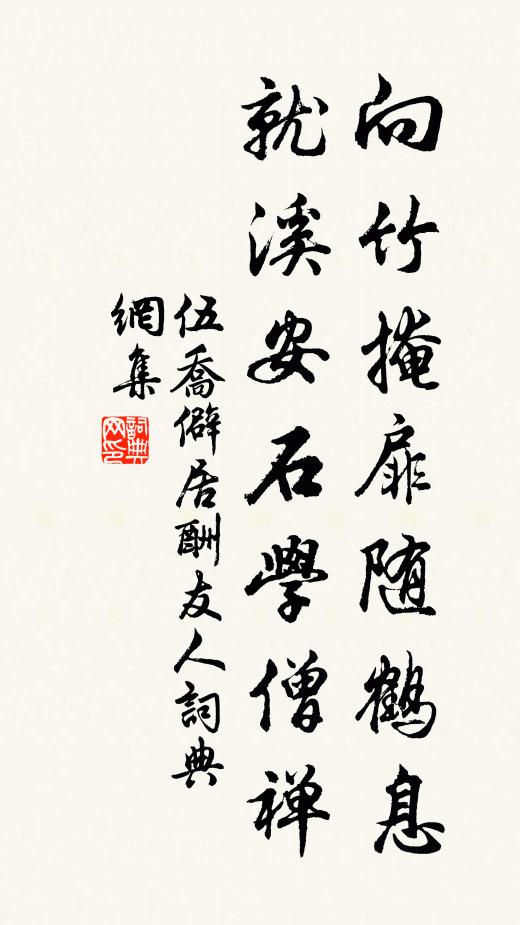 向竹掩扉随鹤息
就溪安石學僧禅
伍喬僻居酬友人詞典
網集
詞典
网印